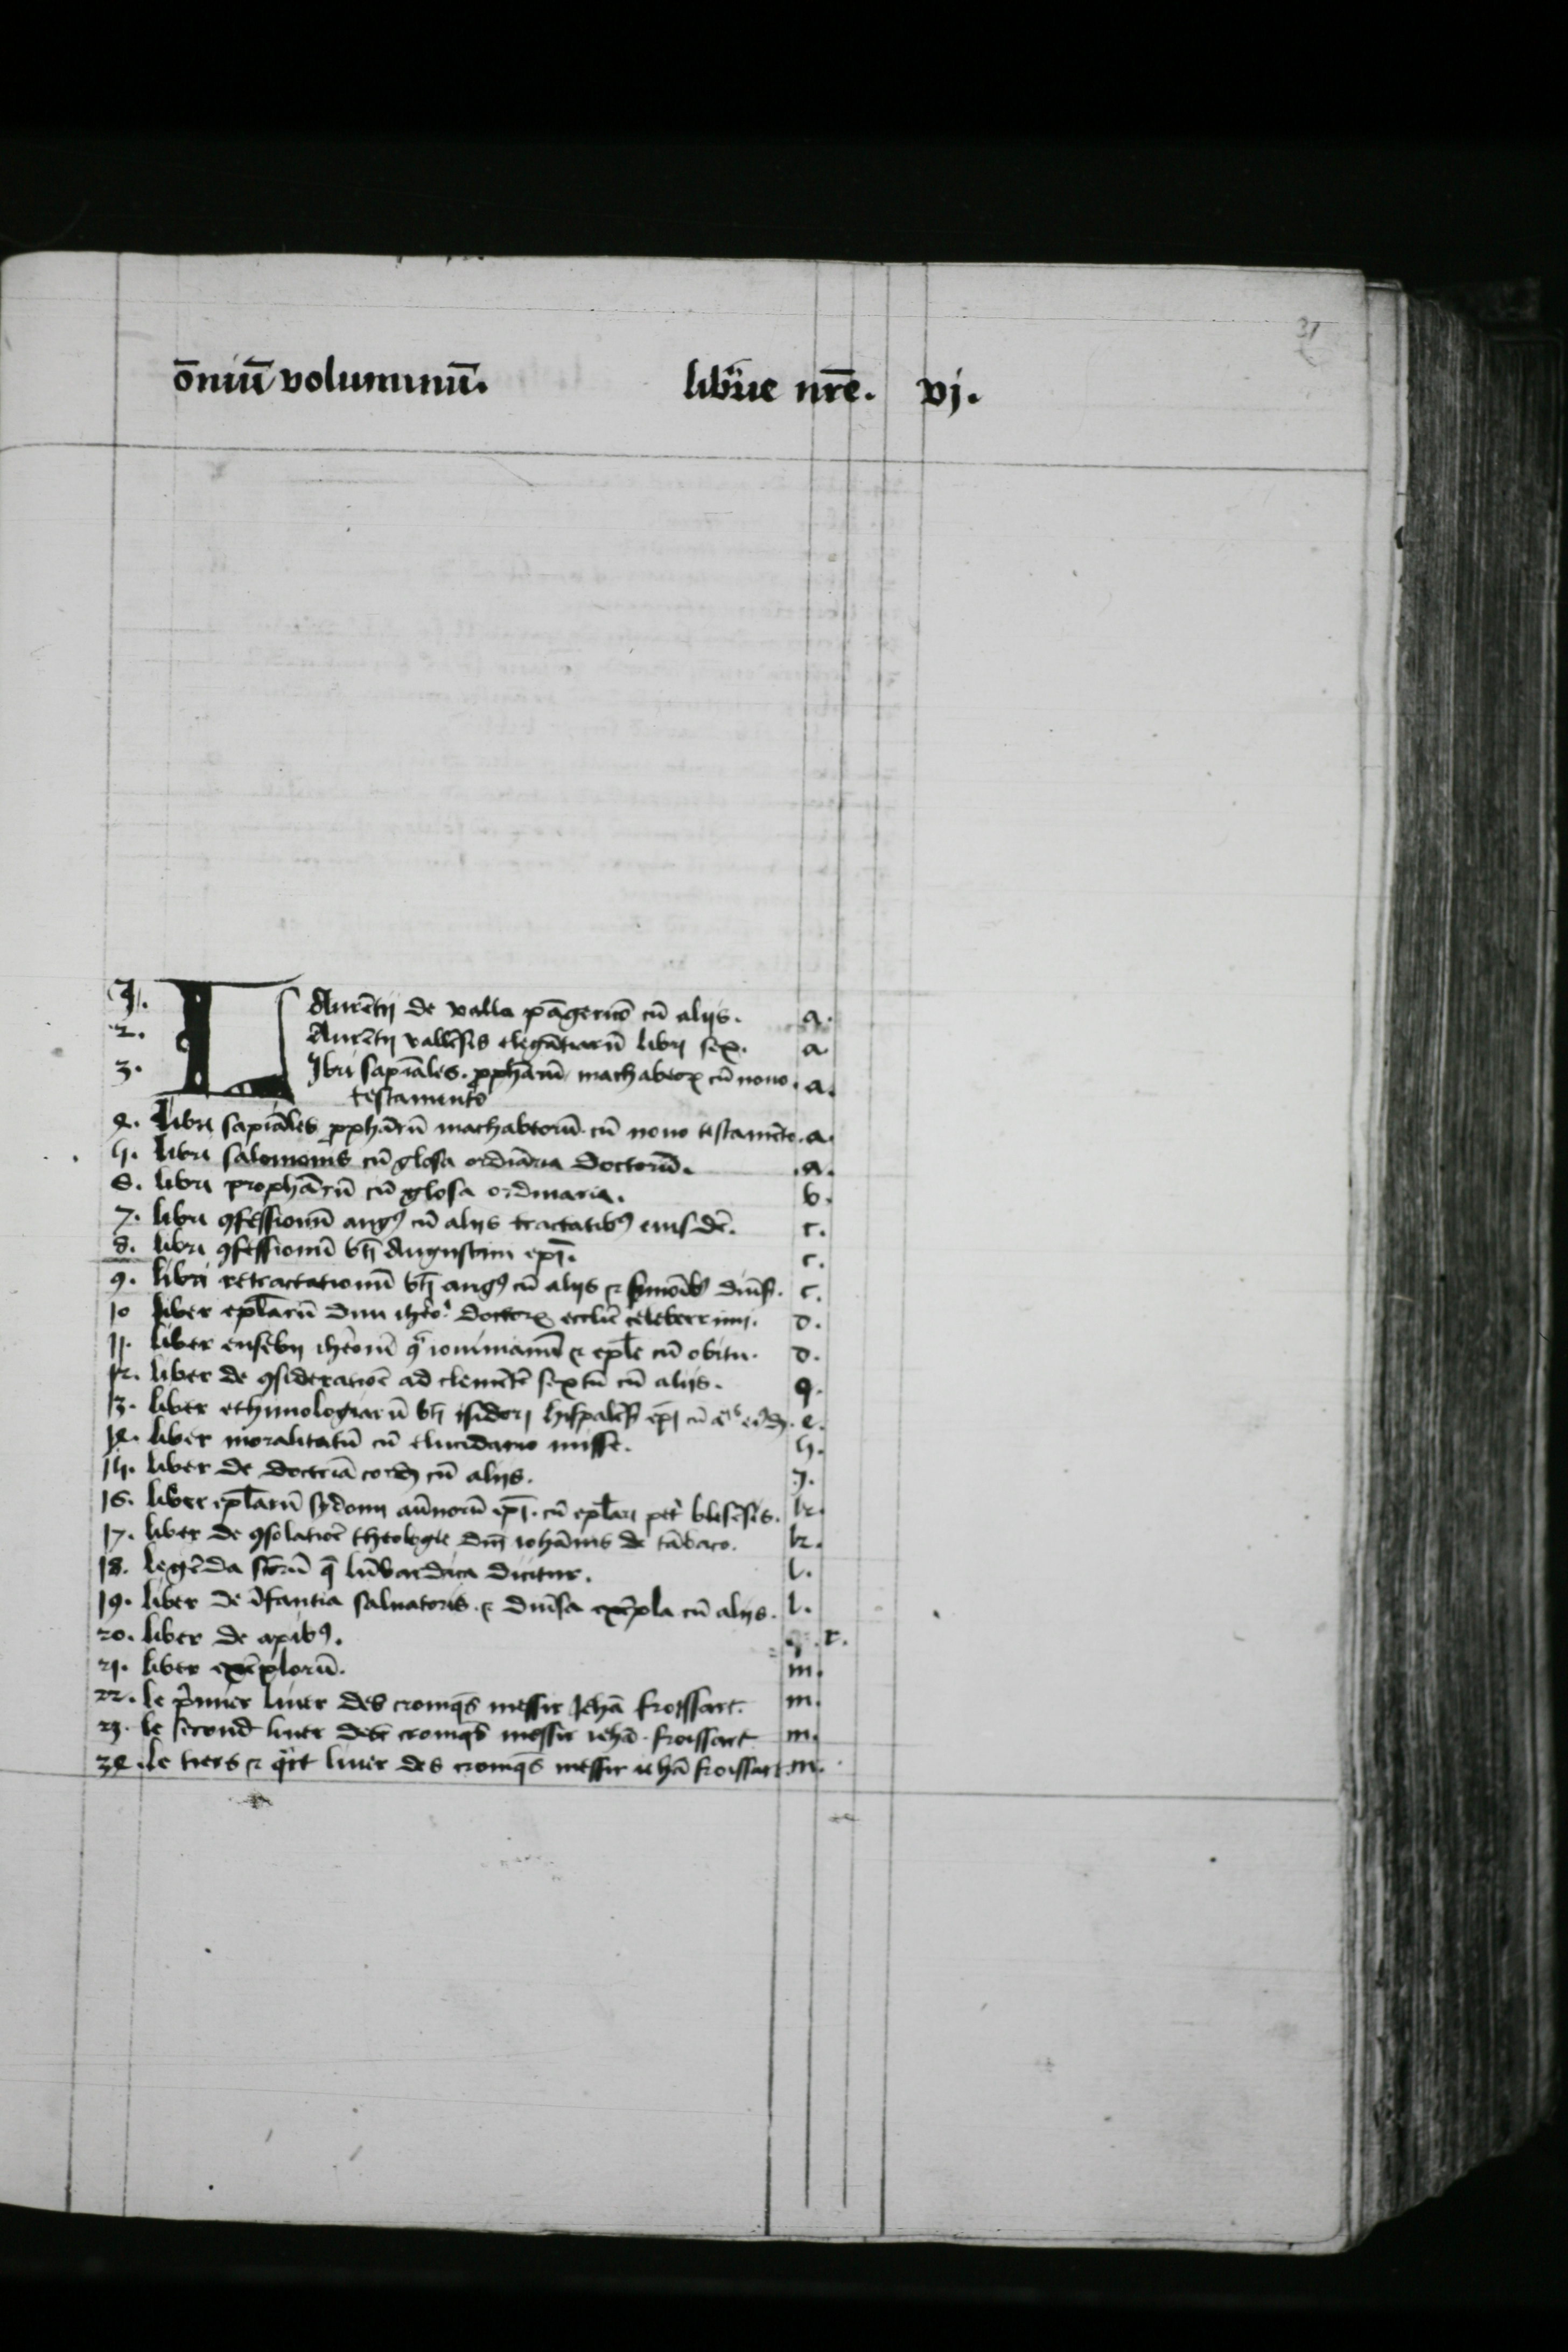 31
ōniū voluminū. libʳie nr̄e. vj.
1. LAurētij de valla pāgericō cū aliis. a.
2. Aurētij vallēsis elegātiarū libri sex. a
3. Jbri sapiāles. ꝓphārū machabeoꝝ cū nouo a.
testamento
4. Libri sapiāles ꝓphārū machabeorū. cū nouo testamēto. a.
5. libri salomonis cū glosa ordiāria doctorū. .a.
6. libri prophārū cū glosa ordinaria. b.
7. libri ꝯfessionū augꝰ cū aliis tractatibꝰ eiusdē. c.
8. libri ꝯfessionū bt̄i Augustini ep̄i. c.
9. libri retractationū bt̄i augꝰ cū aliis ⁊ sermōibꝰ diūs. c.
10 liber epl̄arū diui iheōⁱ doctorꝝ ecclie celeberrimi. d.
11. liber eusebij iheronī iouinianū ⁊ epl̄e cū obitu. d.
12. liber de ꝯsideratiōe ad clemētē sextū cū aliis. q.
13. liber ethimologiarū bt̄i isidori hispalēs ep̄i cū e.
14. liber moralitatū cū elucidario misse. h.
15. liber de doctrīa cordꝭ cū aliis. j.
16. liber epl̄arū sydonij aūnorū ep̄i. cū epl̄ari petⁱ blesēsis. k.
17. liber de ꝯsolatiōe theologie dn̄i iohānis de tābaco. k.
18. legēda sctōrū q̄ lūbardica dicitur. l.
19. liber de īfantia saluatoris. ⁊ diūsa exēpla cū aliis. l.
20. liber de apibꝰ. r.
21. liber exēplorū. m.
22. le p̄mier liuer des croniq̄s messir Jehā froissart. m.
23. le second liuer des croniq̄s messir iehā. froissart m.
24. le tiers ⁊ qͣrt liuer des croniq̄s messir iehā froissart. m.